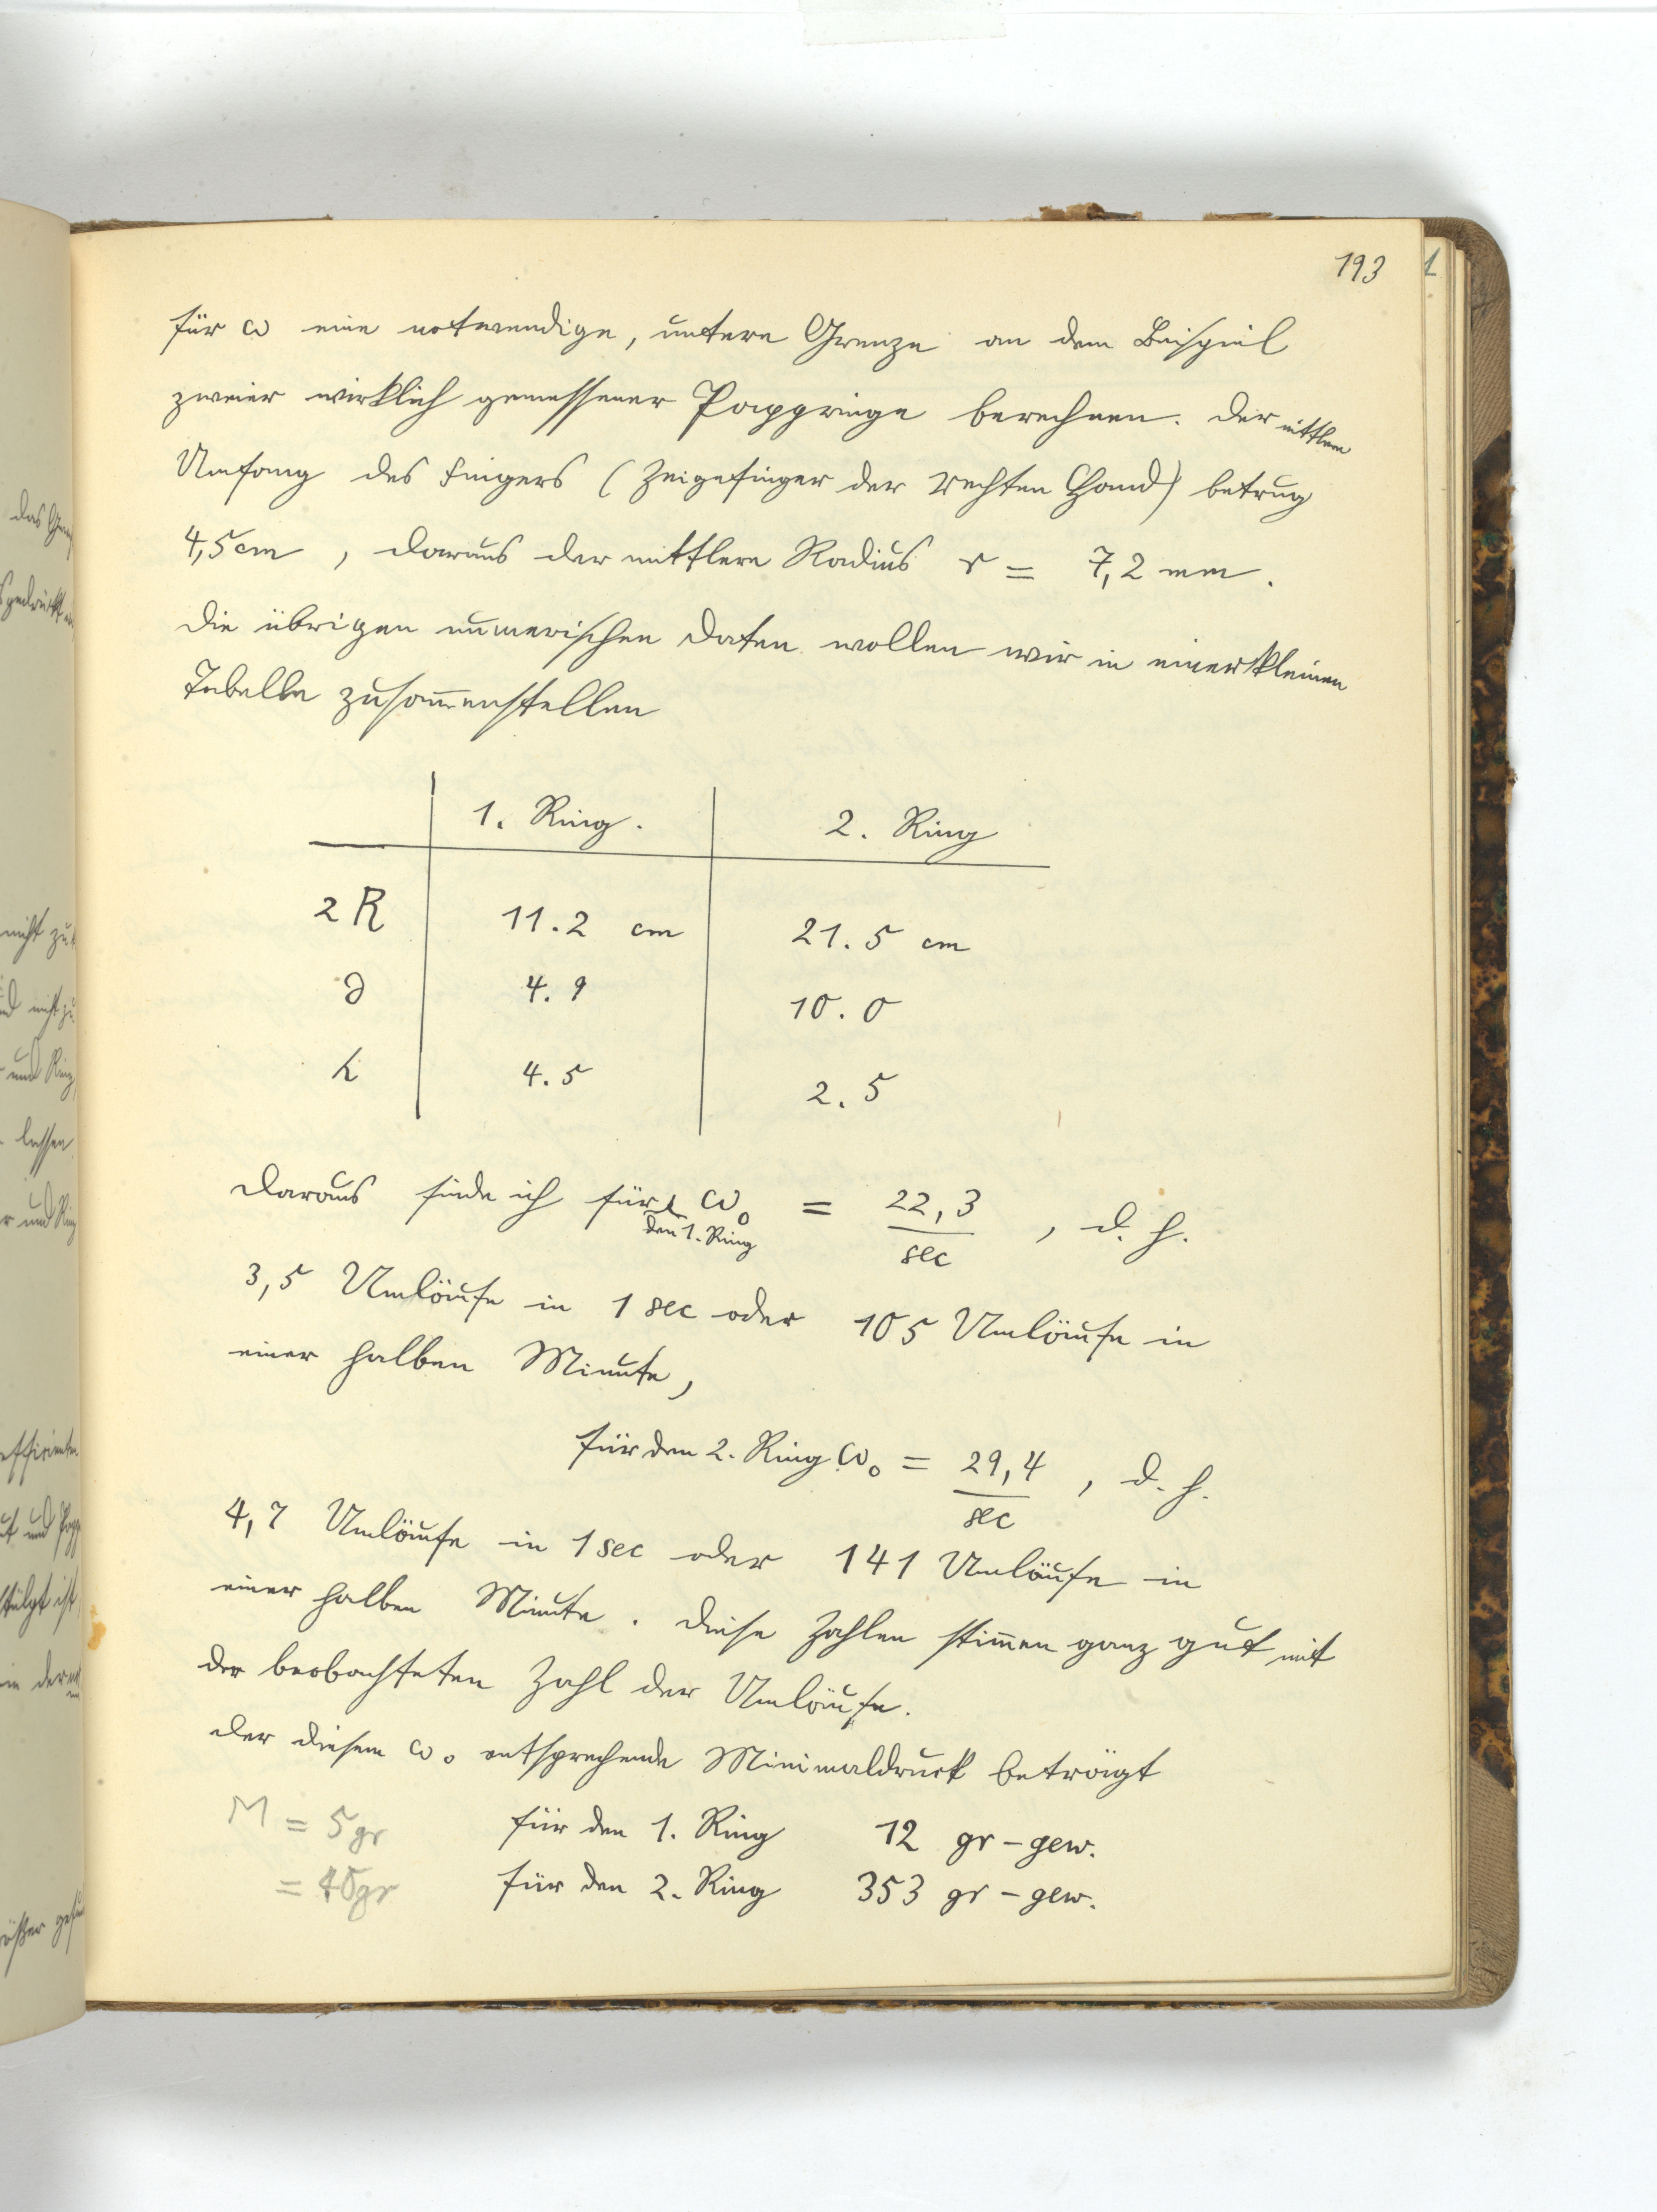 193
1
für ω eine notwendige, untere Grenze an dem Beispiel
zweier wirklich gemessener Pappringe berechnen. Der mittlere
Umfang des Fingers (Zeigefinger der rechten Hand) betrug
4,5 cm, daraus der mittlere Radius r = 7,2 mm.
Die übrigen numerischen Daten wollen wir in einer kleinen
Tabelle zusam̄enstellen
1. Ring. 2. Ring
2R 11.2 cm 21.5 cm
d 4.9 10.0
h 4.5 2.5
Daraus finde ich für den 1. Ring ω₀ = 22,3/sec, d. h.
3,5 Umläufe in 1 sec oder 105 Umläufe in
einer halben Minute,
für den 2. Ring ω₀ = 29,4/sec, d. h.
4,7 Umläufe in 1 sec oder 141 Umläufe in
einer halben Minute. Diese Zahlen stim̄en ganz gut mit
der beobachteten Zahl der Umläufe.
Der diesem ω₀ entsprechende Minimaldruck beträgt
M = 5gr für den 1. Ring 12 gr-gew.
= 40gr für den 2. Ring 353 gr-gew.